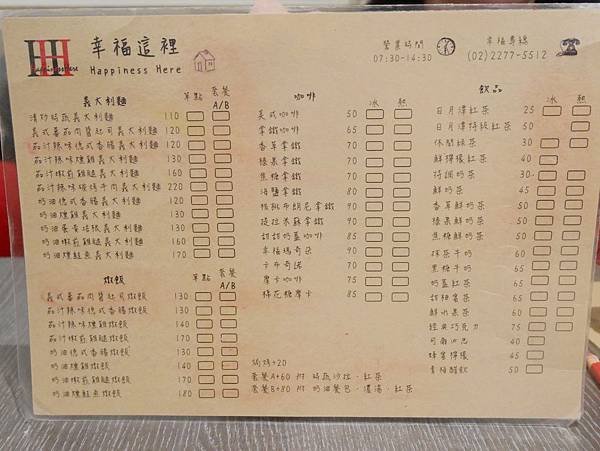 幸福這裡
Happiness Here
營業時間
07:30-14:30
幸福專線
(02)2277-5512
義大利麵 單點 套餐A/B
清炒時蔬義大利麵 110
義式蕃茄肉醬起司義大利麵 120
茄汁辣味德式香腸義大利麵 120
茄汁辣味燻雞義大利麵 130
茄汁嫩煎雞腿義大利麵 160
茄汁辣味 牛肉義大利麵 220
奶油德式香腸義大利麵 120
奶油燻雞義大利麵 130
奶油蛋黃培根義大利麵 130
奶油嫩煎雞腿義大利麵 160
奶油燻鮭魚義大利麵 170
燉飯 單點 套餐A/B
義式蕃茄肉醬起司燉飯 130
茄汁辣味德式香腸燉飯 130
茄汁辣味燻雞燉飯 140
茄汁嫩煎雞腿燉飯 170
奶油德式香腸燉飯 130
奶油燻雞燉飯 140
奶油嫩煎雞腿燉飯 170
奶油燻鮭魚燉飯 180
咖啡 冰 熱
美式咖啡 50
拿鐵咖啡 65
香草拿鐵 70
榛果拿鐵 70
焦糖拿鐵 70
海鹽拿鐵 80
核桃布朗尼拿鐵 90
提拉米蘇拿鐵 90
甜甜奶蓋咖啡 80
幸福瑪奇朵 90
卡布奇諾 70
摩卡咖啡 75
棉花糖摩卡 85
焗烤+20
套餐A+60 附 時蔬沙拉．紅茶
套餐B+80 附 奶油餐包．濃湯．紅茶
飲品 冰 熱
日月潭紅茶 25
日月潭特級紅茶 50
休閒綠茶 30
鮮檸檬紅茶 40
特調奶茶 30
鮮奶茶 45
香草鮮奶茶 50
榛果鮮奶茶 50
焦糖鮮奶茶 50
抹茶牛奶 65
黑糖牛奶 60
奶蓋紅茶 60
甜柚蜜茶 65
鮮水果茶 65
經典巧克力 75
可爾必思 40
蜂蜜檸檬 45
青梅醋飲 50